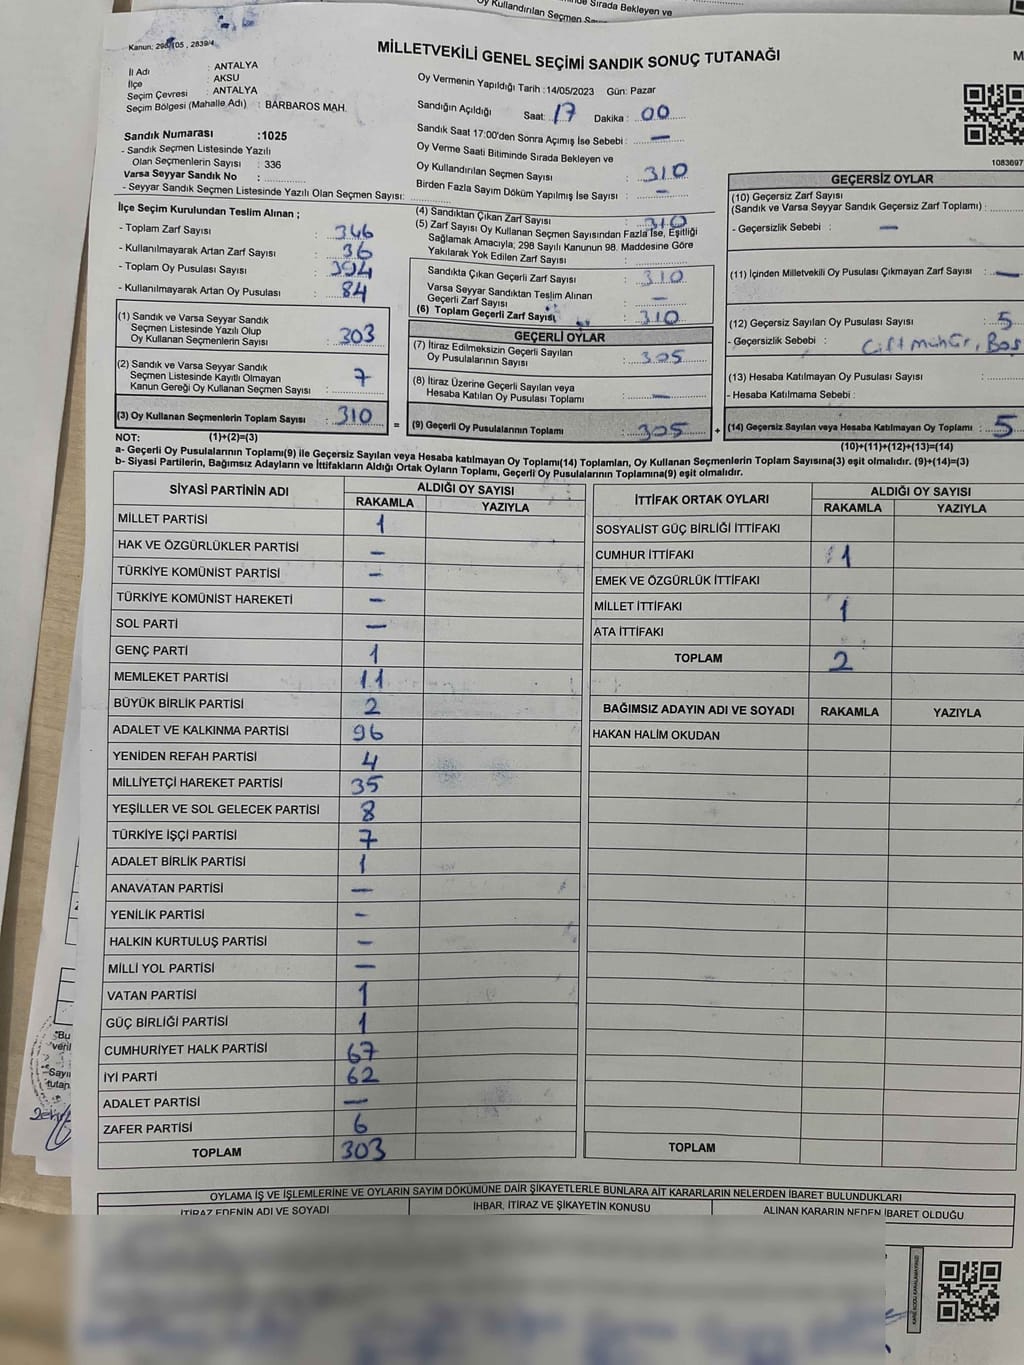 Oy Kullandırılan Seçmen
Sırada Bekleyen ve
Kanun; 298/105 , 2839/4
MİLLETVEKİLİ GENEL SEÇİMİ SANDIK SONUÇ TUTANAĞI
M
İl Adı : ANTALYA
İlçe : AKSU
Seçim Çevresi : ANTALYA
Seçim Bölgesi (Mahalle Adı) : BARBAROS MAH.
Oy Vermenin Yapıldığı Tarih :14/05/2023 Gün: Pazar
Sandığın Açıldığı Saat: 17 Dakika : 00
Sandık Saat 17:00'den Sonra Açımış İse Sebebi : —
Oy Verme Saati Bitiminde Sırada Bekleyen ve
Oy Kullandırılan Seçmen Sayısı : 310
Birden Fazla Sayım Döküm Yapılmış İse Sayısı : —
1083697
Sandık Numarası :1025
- Sandık Seçmen Listesinde Yazılı
Olan Seçmenlerin Sayısı : 336
Varsa Seyyar Sandık No :
- Seyyar Sandık Seçmen Listesinde Yazılı Olan Seçmen Sayısı:
İlçe Seçim Kurulundan Teslim Alınan ;
- Toplam Zarf Sayısı : 346
- Kullanılmayarak Artan Zarf Sayısı : 36
- Toplam Oy Pusulası Sayısı : 394
- Kullanılmayarak Artan Oy Pusulası : 84
(1) Sandık ve Varsa Seyyar Sandık
Seçmen Listesinde Yazılı Olup
Oy Kullanan Seçmenlerin Sayısı : 303
(2) Sandık ve Varsa Seyyar Sandık
Seçmen Listesinde Kayıtlı Olmayan
Kanun Gereği Oy Kullanan Seçmen Sayısı : 7
(3) Oy Kullanan Seçmenlerin Toplam Sayısı : 310
(4) Sandıktan Çıkan Zarf Sayısı : 310
(5) Zarf Sayısı Oy Kullanan Seçmen Sayısından Fazla İse, Eşitliği
Sağlamak Amacıyla; 298 Sayılı Kanunun 98. Maddesine Göre
Yakılarak Yok Edilen Zarf Sayısı :
Sandıkta Çıkan Geçerli Zarf Sayısı : 310
Varsa Seyyar Sandıktan Teslim Alınan
Geçerli Zarf Sayısı : —
(6) Toplam Geçerli Zarf Sayısı : 310
GEÇERLİ OYLAR
(7) İtiraz Edilmeksizin Geçerli Sayılan
Oy Pusulalarının Sayısı : 305
(8) İtiraz Üzerine Geçerli Sayılan veya
Hesaba Katılan Oy Pusulası Toplamı : —
= (9) Geçerli Oy Pusulalarının Toplamı : 305
GEÇERSİZ OYLAR
(10) Geçersiz Zarf Sayısı
(Sandık ve Varsa Seyyar Sandık Geçersiz Zarf Toplamı) :
- Geçersizlik Sebebi : —
(11) İçinden Milletvekili Oy Pusulası Çıkmayan Zarf Sayısı : —
(12) Geçersiz Sayılan Oy Pusulası Sayısı : 5
- Geçersizlik Sebebi : Çift mühür, Boş
(13) Hesaba Katılmayan Oy Pusulası Sayısı :
- Hesaba Katılmama Sebebi :
+ (14) Geçersiz Sayılan veya Hesaba Katılmayan Oy Toplamı : 5
NOT: (1)+(2)=(3)
(10)+(11)+(12)+(13)=(14)
a- Geçerli Oy Pusulalarının Toplamı(9) ile Geçersiz Sayılan veya Hesaba katılmayan Oy Toplamı(14) Toplamları, Oy Kullanan Seçmenlerin Toplam Sayısına(3) eşit olmalıdır. (9)+(14)=(3)
b- Siyasi Partilerin, Bağımsız Adayların ve İttifakların Aldığı Ortak Oyların Toplamı, Geçerli Oy Pusulalarının Toplamına(9) eşit olmalıdır.
SİYASİ PARTİNİN ADI ALDIĞI OY SAYISI
RAKAMLA YAZIYLA
MİLLET PARTİSİ 1
HAK VE ÖZGÜRLÜKLER PARTİSİ —
TÜRKİYE KOMÜNİST PARTİSİ —
TÜRKİYE KOMÜNİST HAREKETİ —
SOL PARTİ —
GENÇ PARTİ 1
MEMLEKET PARTİSİ 11
BÜYÜK BİRLİK PARTİSİ 2
ADALET VE KALKINMA PARTİSİ 96
YENİDEN REFAH PARTİSİ 4
MİLLİYETÇİ HAREKET PARTİSİ 35
YEŞİLLER VE SOL GELECEK PARTİSİ 8
TÜRKİYE İŞÇİ PARTİSİ 7
ADALET BİRLİK PARTİSİ 1
ANAVATAN PARTİSİ —
YENİLİK PARTİSİ —
HALKIN KURTULUŞ PARTİSİ —
MİLLİ YOL PARTİSİ —
VATAN PARTİSİ 1
GÜÇ BİRLİĞİ PARTİSİ 1
CUMHURİYET HALK PARTİSİ 67
İYİ PARTİ 62
ADALET PARTİSİ —
ZAFER PARTİSİ 6
TOPLAM 303
İTTİFAK ORTAK OYLARI ALDIĞI OY SAYISI
RAKAMLA YAZIYLA
SOSYALİST GÜÇ BİRLİĞİ İTTİFAKI
CUMHUR İTTİFAKI 1
EMEK VE ÖZGÜRLÜK İTTİFAKI
MİLLET İTTİFAKI 1
ATA İTTİFAKI
TOPLAM 2
BAĞIMSIZ ADAYIN ADI VE SOYADI RAKAMLA YAZIYLA
HAKAN HALİM OKUDAN
TOPLAM
OYLAMA İŞ VE İŞLEMLERİNE VE OYLARIN SAYIM DÖKÜMÜNE DAİR ŞİKAYETLERLE BUNLARA AİT KARARLARIN NELERDEN İBARET BULUNDUKLARI
İTİRAZ EDENİN ADI VE SOYADI İHBAR, İTİRAZ VE ŞİKAYETİN KONUSU ALINAN KARARIN NEDEN İBARET OLDUĞU